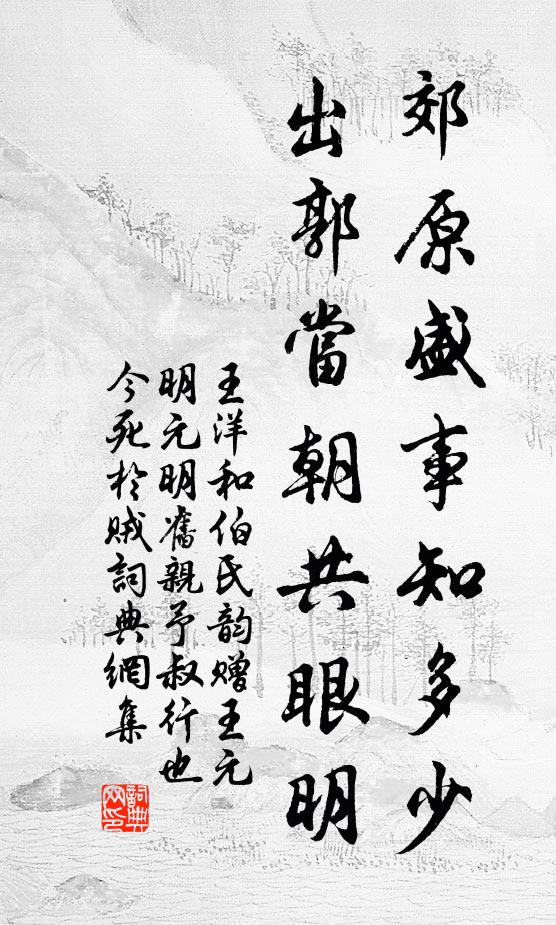 郊原盛事知多少
出郭當朝共眼明
王洋和伯氏韵贈王元
明元明舊親予叔行也
今死於賊詞典網集
詞典
网印